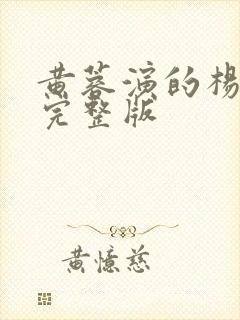 黄蓉演的杨
完整版
黄憶慈